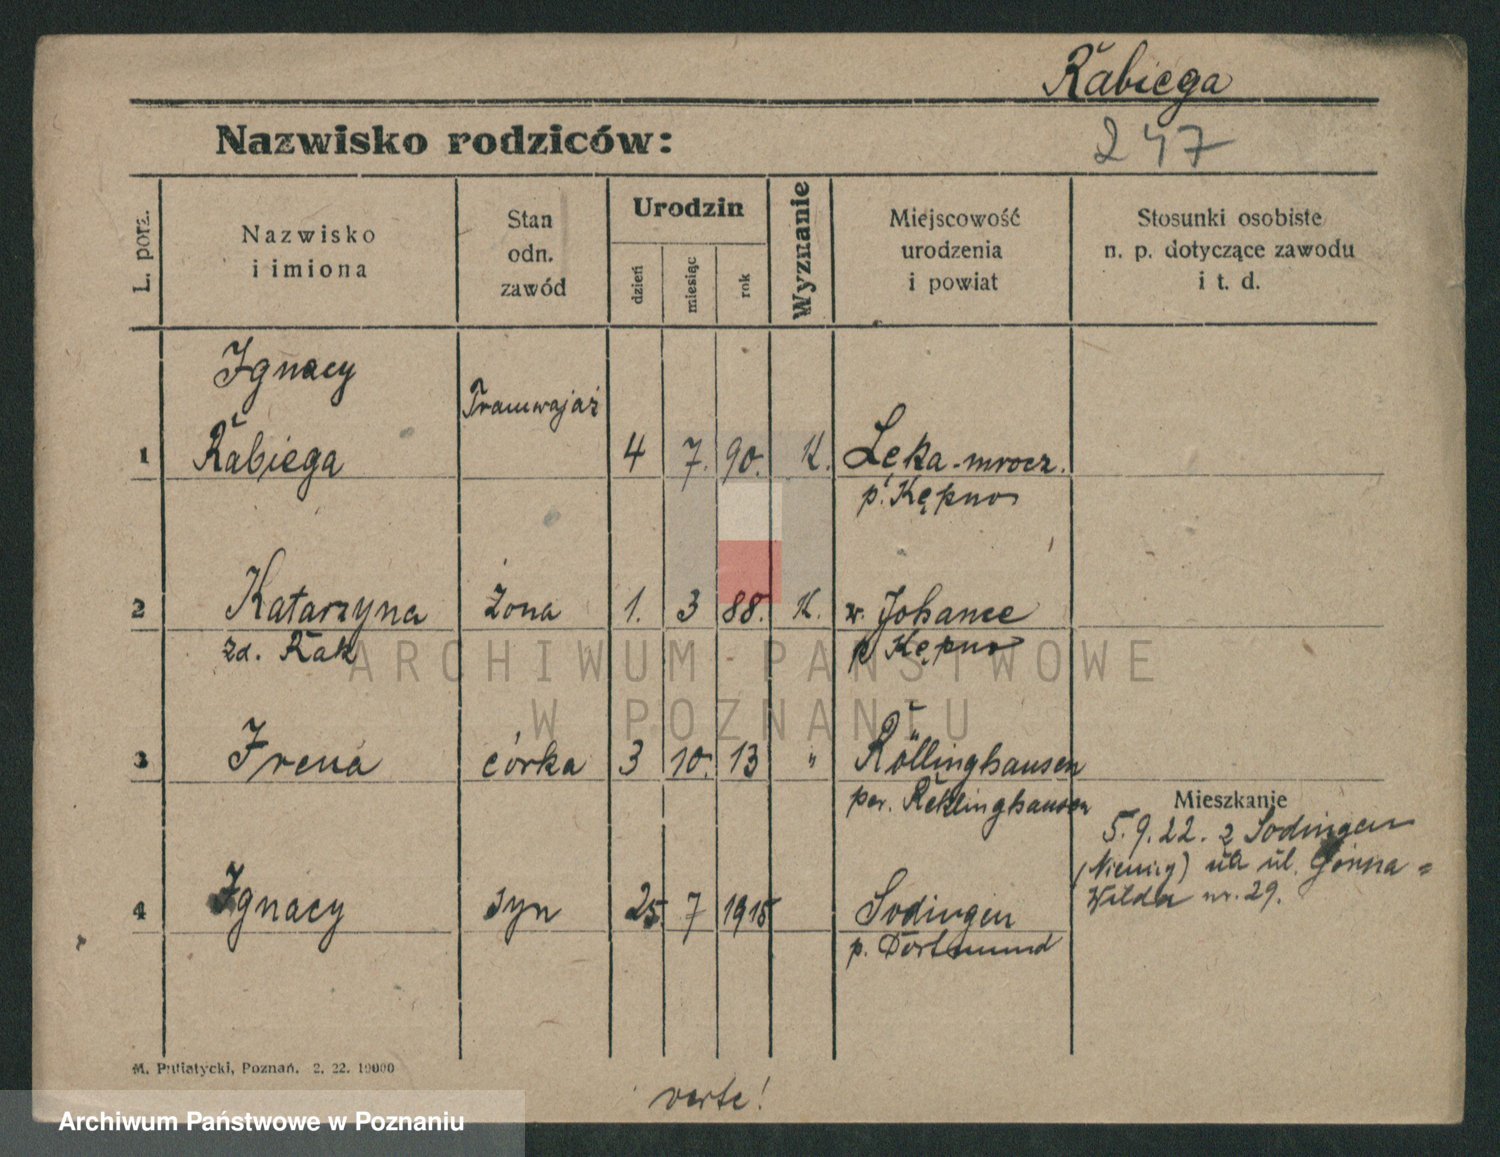 Rabiega
Nazwisko rodziców:
247
L. porz.
Nazwisko
i imiona
Stan
odn.
zawód
Urodzin
dzień
miesiąc
rok
Wyznanie
Miejscowość
urodzenia
i powiat
Stosunki osobiste
n. p. dotyczące zawodu
i t. d.
Ignacy
Tramwajaż
1 Rabiega 4 7. 90. K. Lęka-mrocz.
p. Kępno
2 Katarzyna żona 1. 3 88. K. w. Johance
zd. Rak p. Kępno
ARCHIWUM PAŃSTWOWE
W POZNANIU
3 Irena córka 3 10. 13 " Röllinghausen
pow. Reklinghausen
Mieszkanie
5.9.22. z Sodingen
(Niemcy) na ul. Górna =
Wilda nr. 29.
4 Ignacy syn 25. 7 1915 Sodingen
p. Dortmund
M. Putiatycki, Poznań. 2. 22. 10000
verte!
Archiwum Państwowe w Poznaniu